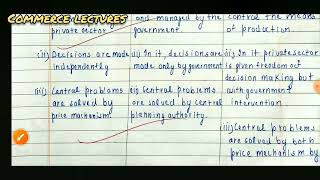 COMMERCE LECTURES
private sector
and managed by the
government.
control the means
of production.
(ii) Decisions are made
independently
ii) In it, decisions are
made only by government
ii) In it private sector
is given freedom of
decision making but
with government
intervention.
(iii) Central problems
are solved by
price mechanism.
iii) Central problems
are solved by central
planning authority.
iii) Central problems
are solved by both
price mechanism by